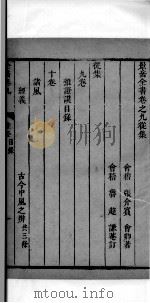 景岳全書卷之九從集
會稽 張介賓 會卿著
會稽 魯 超 謙菴訂
從集
九卷
雜證謨目錄
十卷
諸風
經義
古今中風之辨 共三條